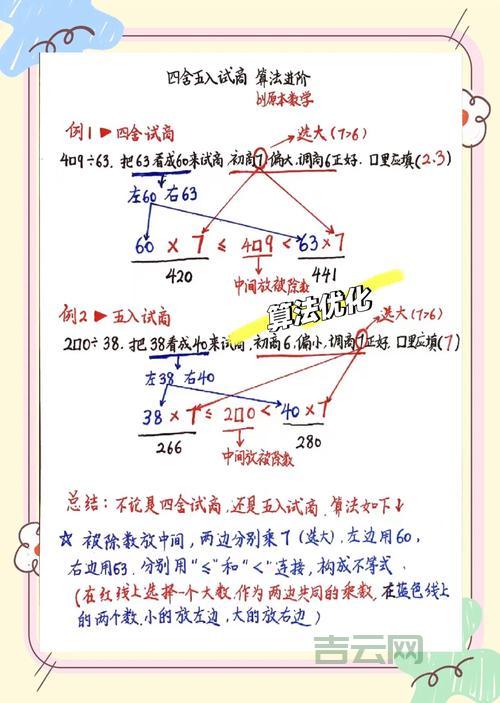 四舍五入试商 算法进阶
by原本数学
例1▶四舍试商
选大(7>6)
4口9÷63.把63看成60来试商,初商7偏大,调商6正好.口里应填(2.3)
左60 右63
60 × 7 ≤ 4口9 < 63×7
420
中间放被除数
441
算法优化
例2▶五入试商
选大(7>6)
2口0÷38.把38看成40来试商,初商6,偏小,调商7正好,口里应填(7)
左38 右40
38 × 7 ≤ 2口0 < 40×7
266
中间放被除数
280
总结:不论是四舍试商,还是五入试商,算法如下↓
☆ 被除数放中间,两边分别乘7(选大),左边用60,
右边用63.分别用"≤"和"<"连接,构成不等式.
(在红线上选择一个大数,作为两边共同的乘数,在蓝色线上
的两个数,小的放左边,大的放右边)
吉云网